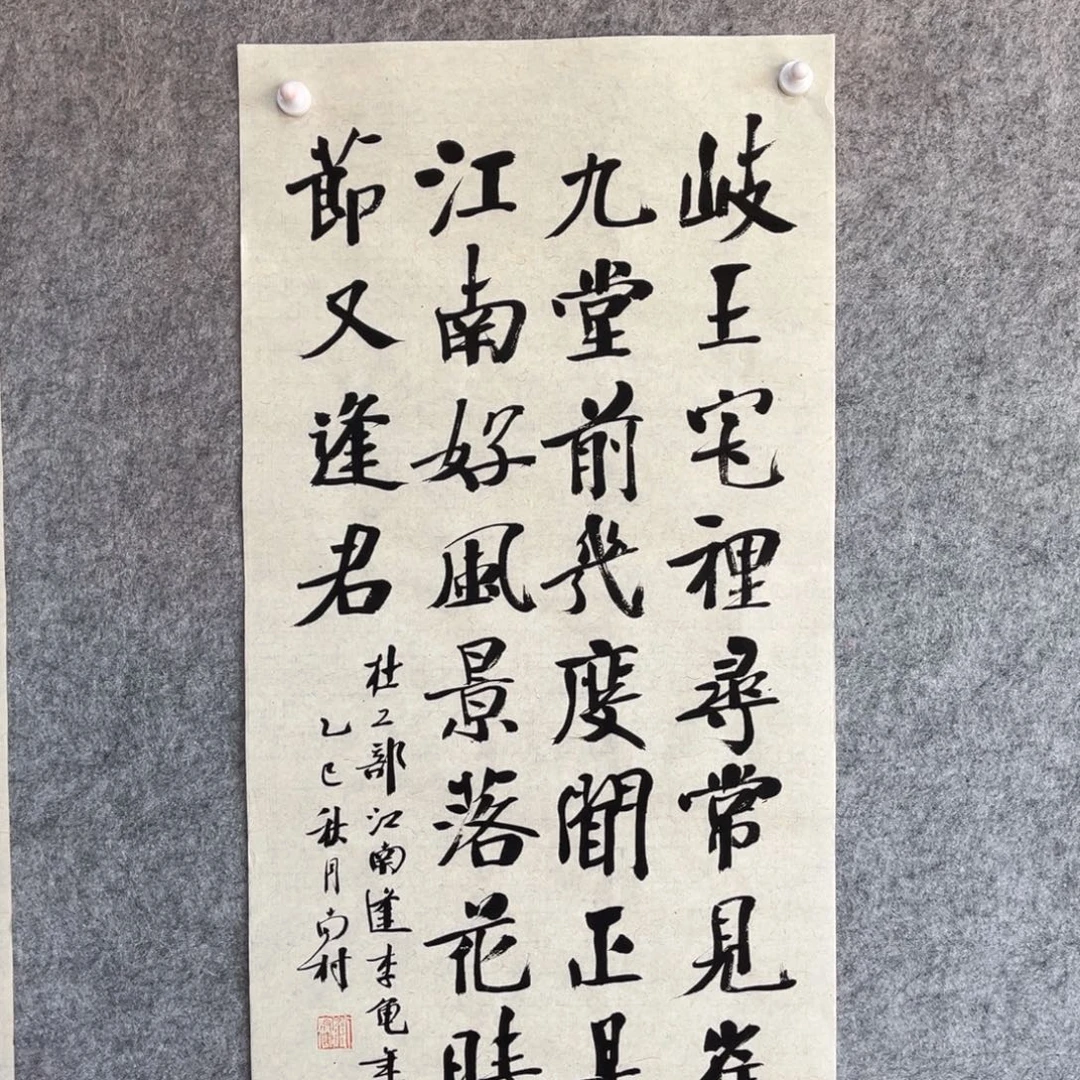 岐王宅裡尋常見崔
九堂前幾度聞正是
江南好風景落花時
節又逢君
杜工部江南逢李龟年
乙巳秋月